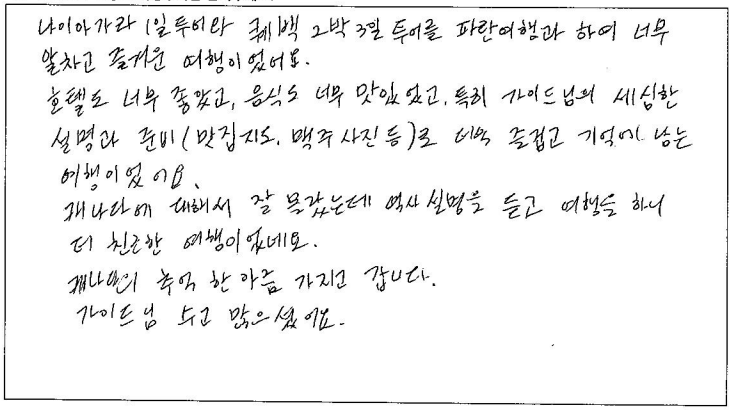 나이아가라 1일투어와 퀘백 2박3일 투어를 파란여행과 하여 너무
알차고 즐거운 여행이었어요.
호텔도 너무 좋았고, 음식도 너무 맛있었고, 특히 가이드님의 세심한
설명과 준비(맛집지도, 맥주사진 등)로 더욱 즐겁고 기억에 남는
여행이었어요.
캐나다에 대해서 잘 몰랐는데 역사 설명을 듣고 여행을 하니
더 친근한 여행이었네요.
캐나다의 추억 한아름 가지고 갑니다.
가이드님 수고 많으셨어요.